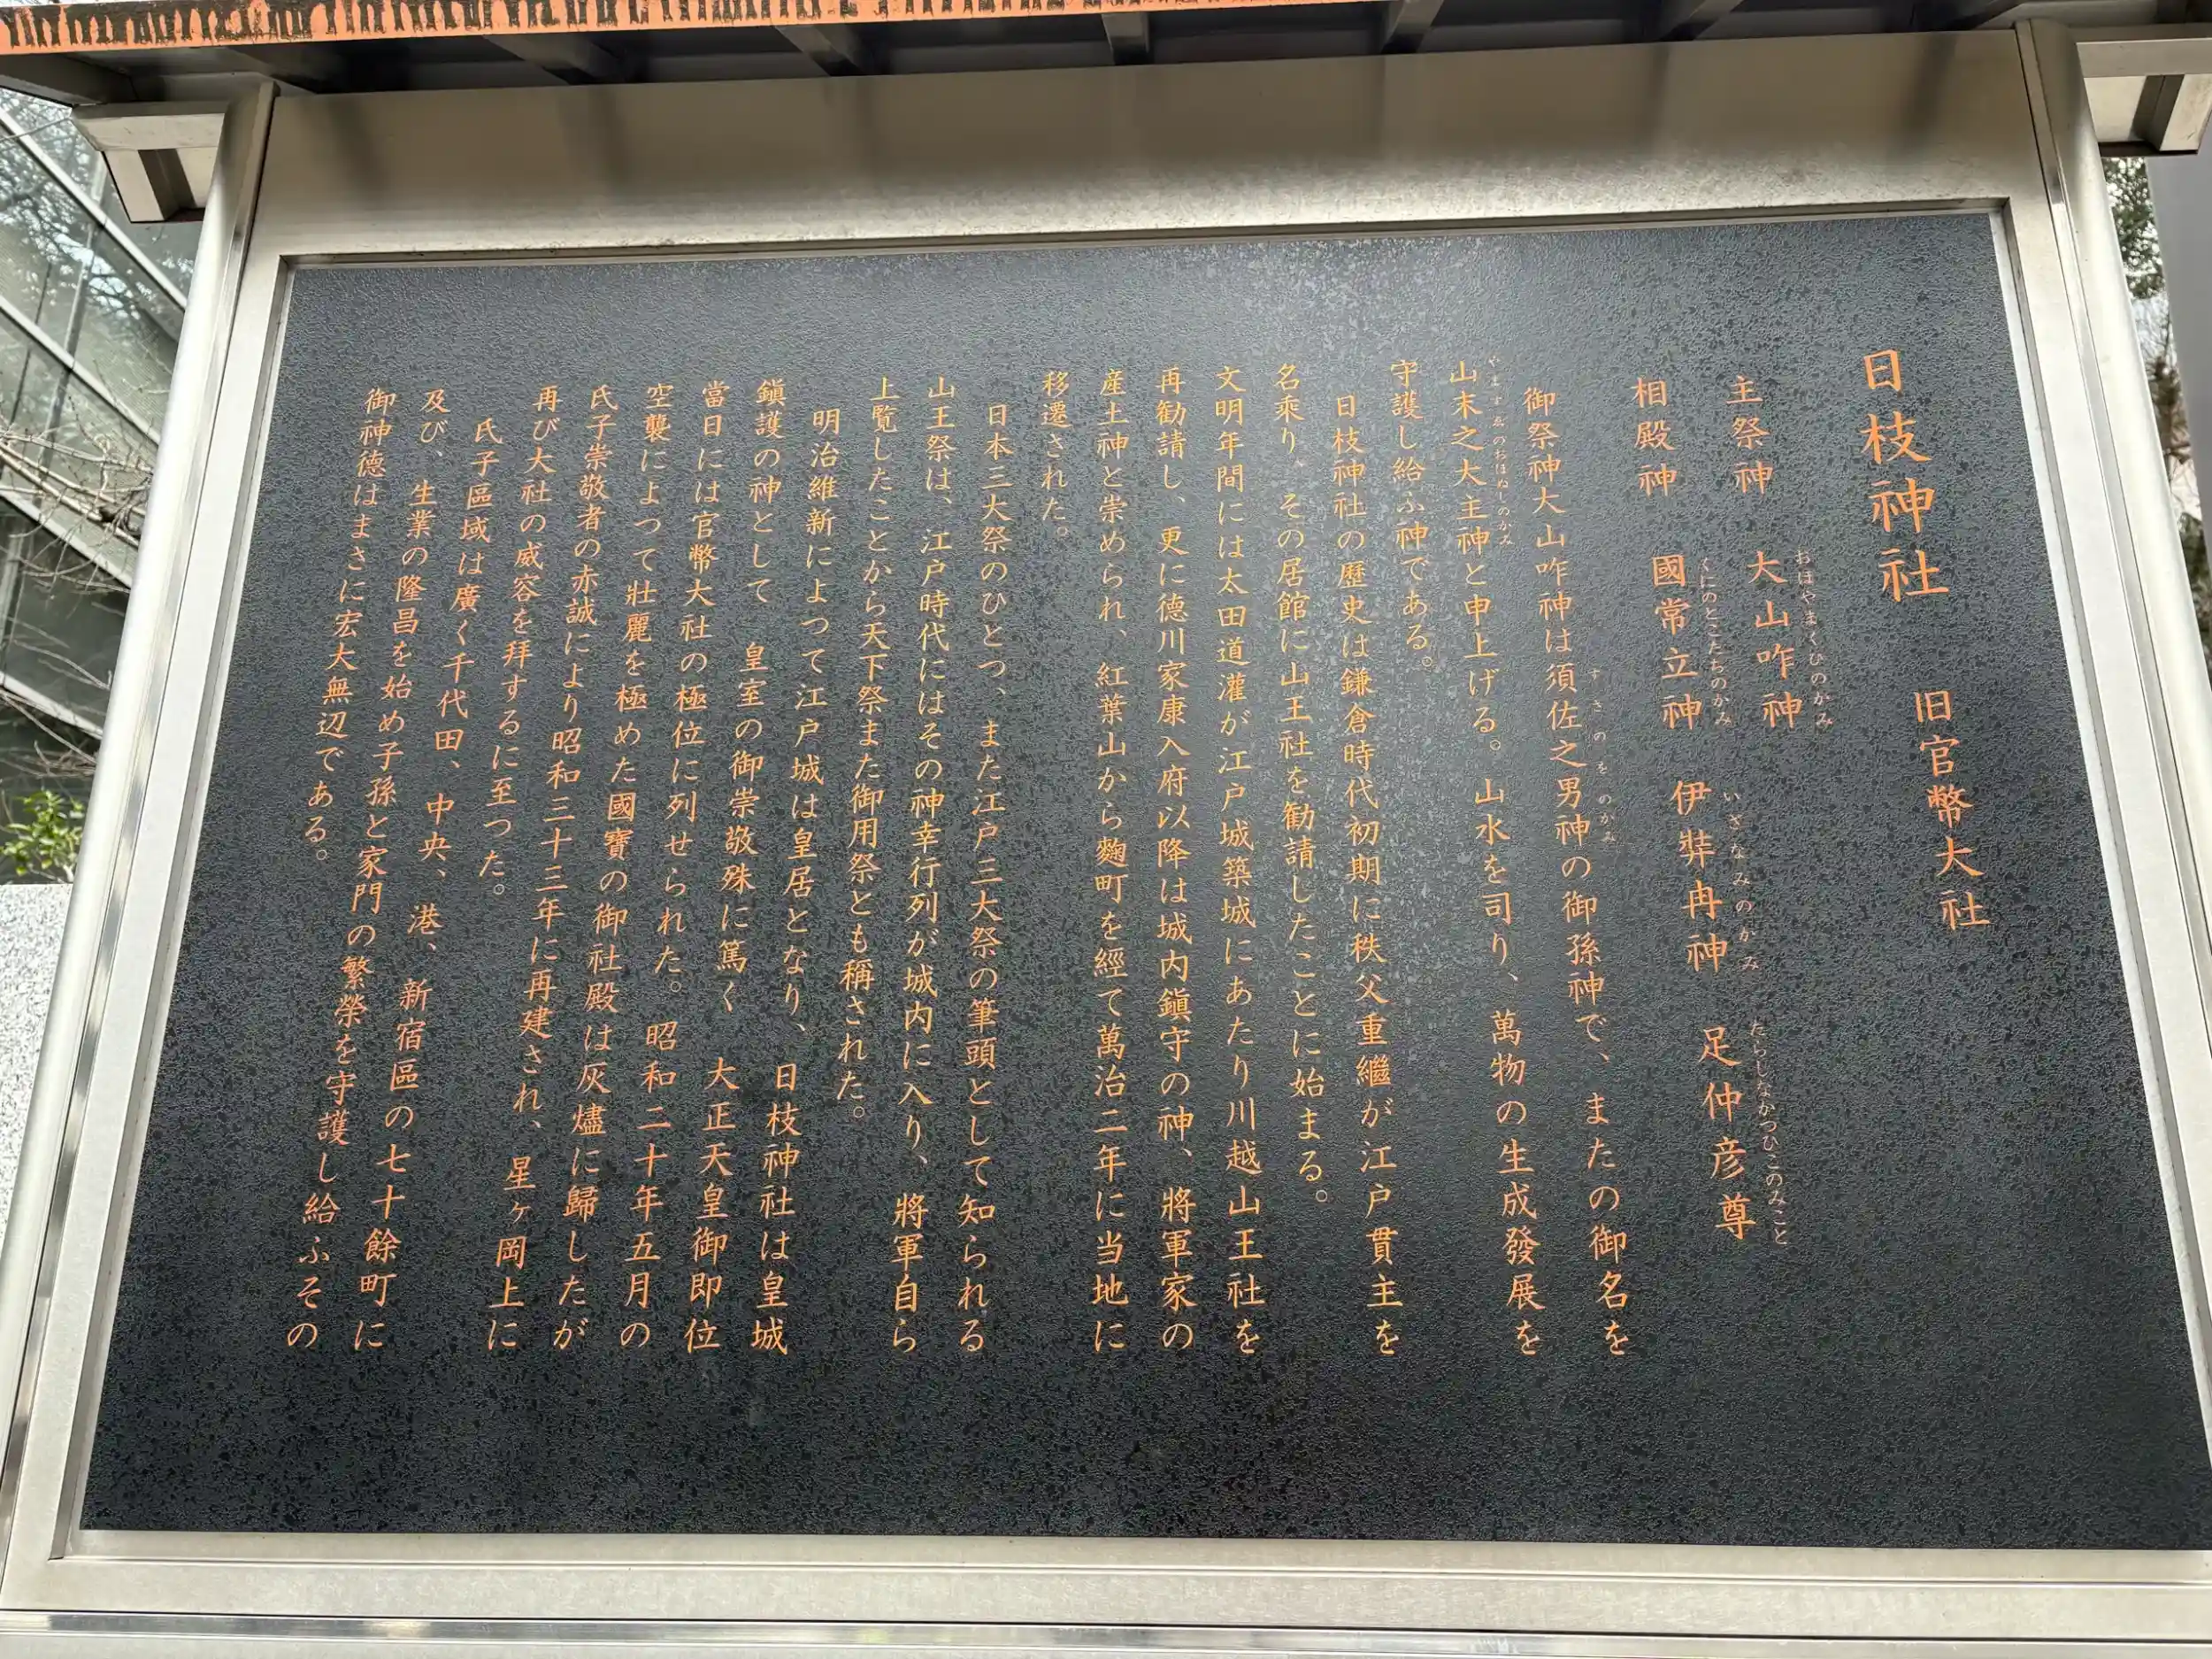 日枝神社 旧官幣大社
主祭神 大山咋神
おほやまくひのかみ
相殿神 國常立神 伊弉冉神 足仲彦尊
くにのとこたちのかみ いざなみのかみ たらしなかつひこのみこと
御祭神大山咋神は須佐之男神の御孫神で、またの御名を
すさのをのかみ
山末之大主神と申上げる。山水を司り、萬物の生成發展を
やますゑのおほぬしのかみ
守護し給ふ神である。
日枝神社の歴史は鎌倉時代初期に秩父重繼が江戸貫主を
名乘り、その居館に山王社を勧請したことに始まる。
文明年間には太田道灌が江戸城築城にあたり川越山王社を
再勧請し、更に德川家康入府以降は城内鎭守の神、將軍家の
産土神と崇められ、紅葉山から麴町を經て萬治二年に当地に
移遷された。
日本三大祭のひとつ、また江戸三大祭の筆頭として知られる
山王祭は、江戸時代にはその神幸行列が城内に入り、將軍自ら
上覧したことから天下祭また御用祭とも稱された。
明治維新によって江戸城は皇居となり、日枝神社は皇城
鎭護の神として 皇室の御崇敬殊に篤く 大正天皇御即位
當日には官幣大社の極位に列せられた。昭和二十年五月の
空襲によって壯麗を極めた國寶の御社殿は灰燼に歸したが
氏子崇敬者の赤誠により昭和三十三年に再建され、星ヶ岡上に
再び大社の威容を拜するに至つた。
氏子區域は廣く千代田、中央、港、新宿區の七十餘町に
及び、生業の隆昌を始め子孫と家門の繁榮を守護し給ふその
御神德はまさに宏大無辺である。